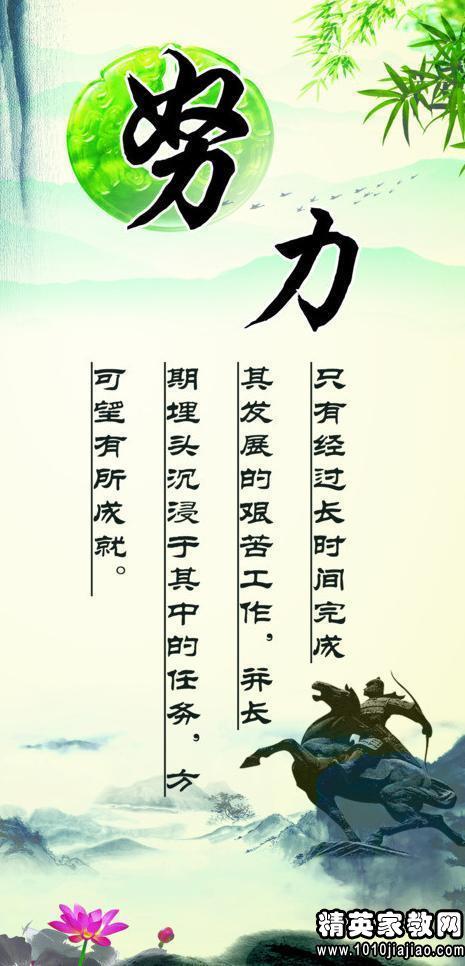 努力
只有经过长时间完成
其发展的艰苦工作，并长
期埋头沉浸于其中的任务，方
可望有所成就。
精英家教网
http://www.1010jiajiao.com